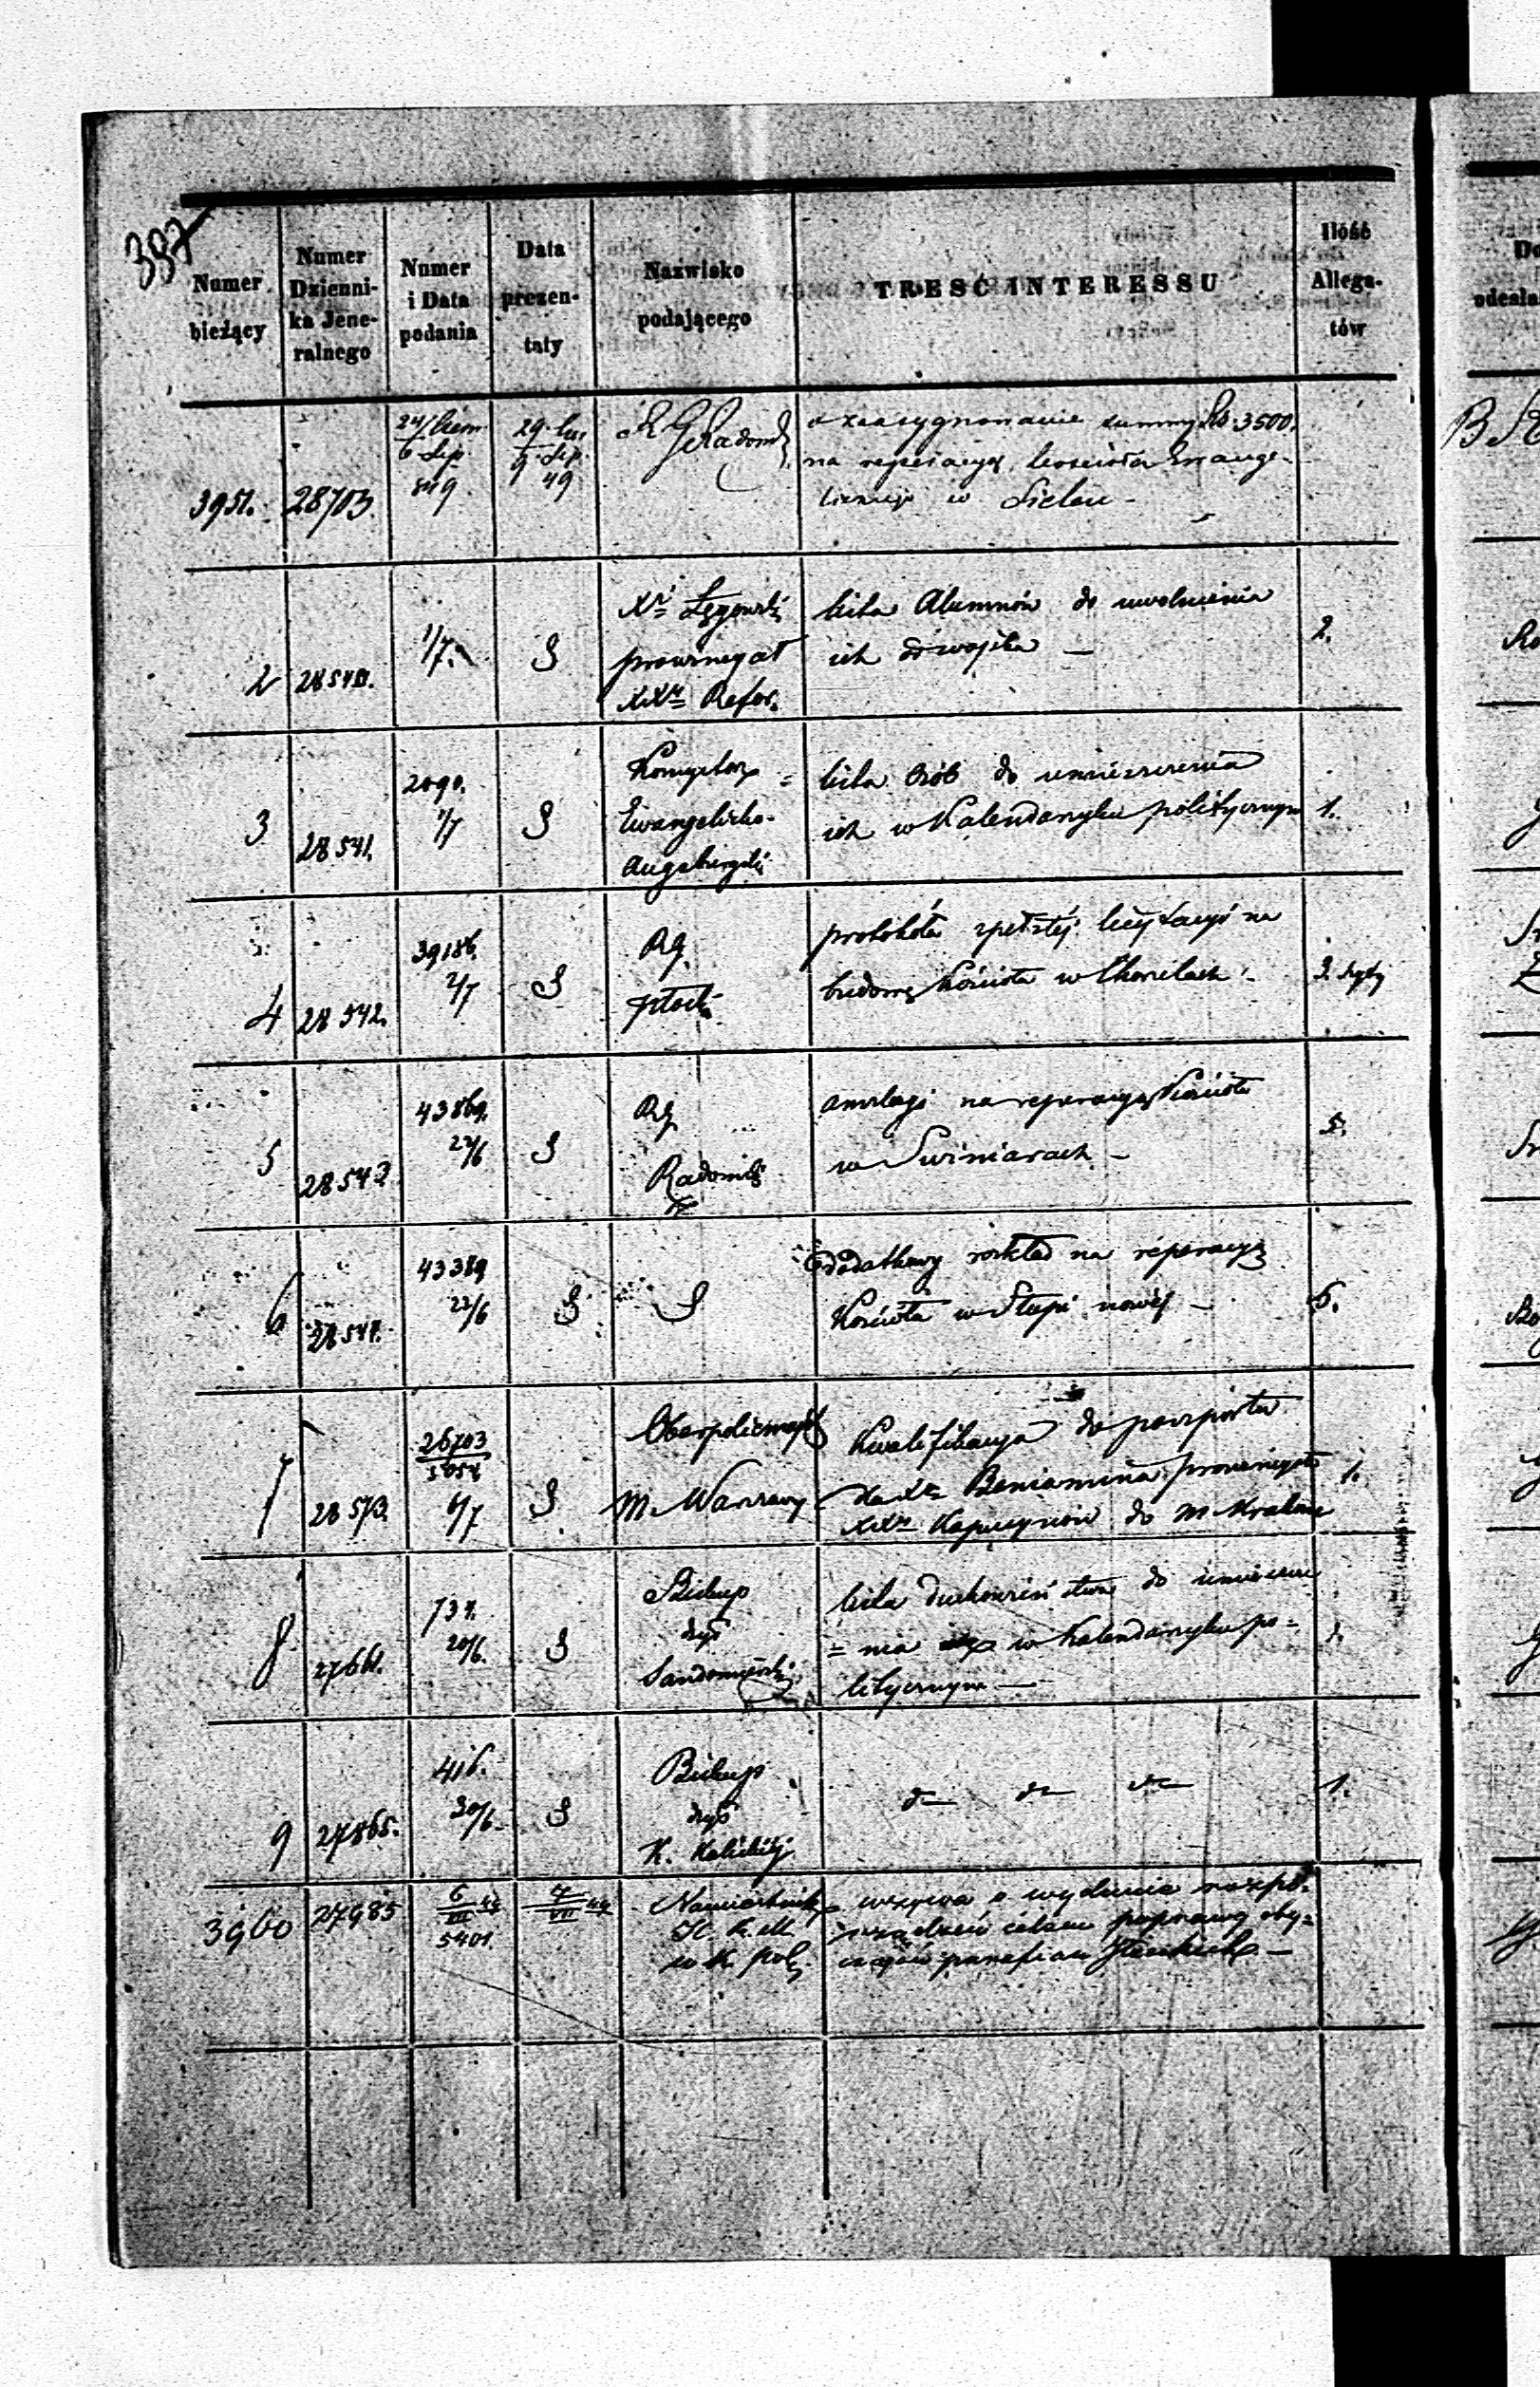 397
Numer bieżący
Numer Dziennika Jeneralnego
Numer i Data podania
Data prezentaty
Nazwisko podającego
TREŚĆ INTERESSU
Ilość Allegatów
3951.
28703.
24/Czerw
6 Lip
849
29. Cz.
9. Lip.
49
o zaasygnowanie summy Rs. 3500.
na reperacyę kościoła Ewange-
lickiego w
2
28540.
1/7
Xdz Łęgowski
prowincyał
XX Refor.
lista Alumnów do uwolnienia
ich od wojska —
2.
3
28541.
2090.
1/7
Konsystorz
Ewangelicko-
Augsburgski
lista osób do umieszczenia
ich w Kalendarzyku politycznym
1.
4
28542.
39186.
2/7
RG.
Płocki
protokóła spełzłéj licytacyi na
budowę kościoła w Chorzelach
5
28543.
43869.
22/6
RG
Radomski
anszlagi na reperacyą Kościoła
w Swiniarach —
5.
6
43389
22/6
dodatkowy rozkład na reperacyę
Kościoła w Słupi nowéj —
6.
7
28573.
26703
6/7
Oberpolicmajst
m. Warszawy
Kwalifikacya do paszportu
dla Xdza Beniamina prowincyała
XX Kapucynów do m Krakowa
1.
8
27661.
737.
20/6.
Biskup
dyc
Sandomierski
lista duchowieństwa do umieszcze
= nia w Kalendarzyku po=
litycznym —
1.
9
27865.
416.
30/6.
Biskup
dyc
K. Kaliskiéj
do do do
1.
3960
27985
6/VII 49
5401.
7/VII 49
Namiestnik
w K. Pol.
wzywa o wydanie rozpo=
rządzeń celem poprawy oby=
czajów parafian